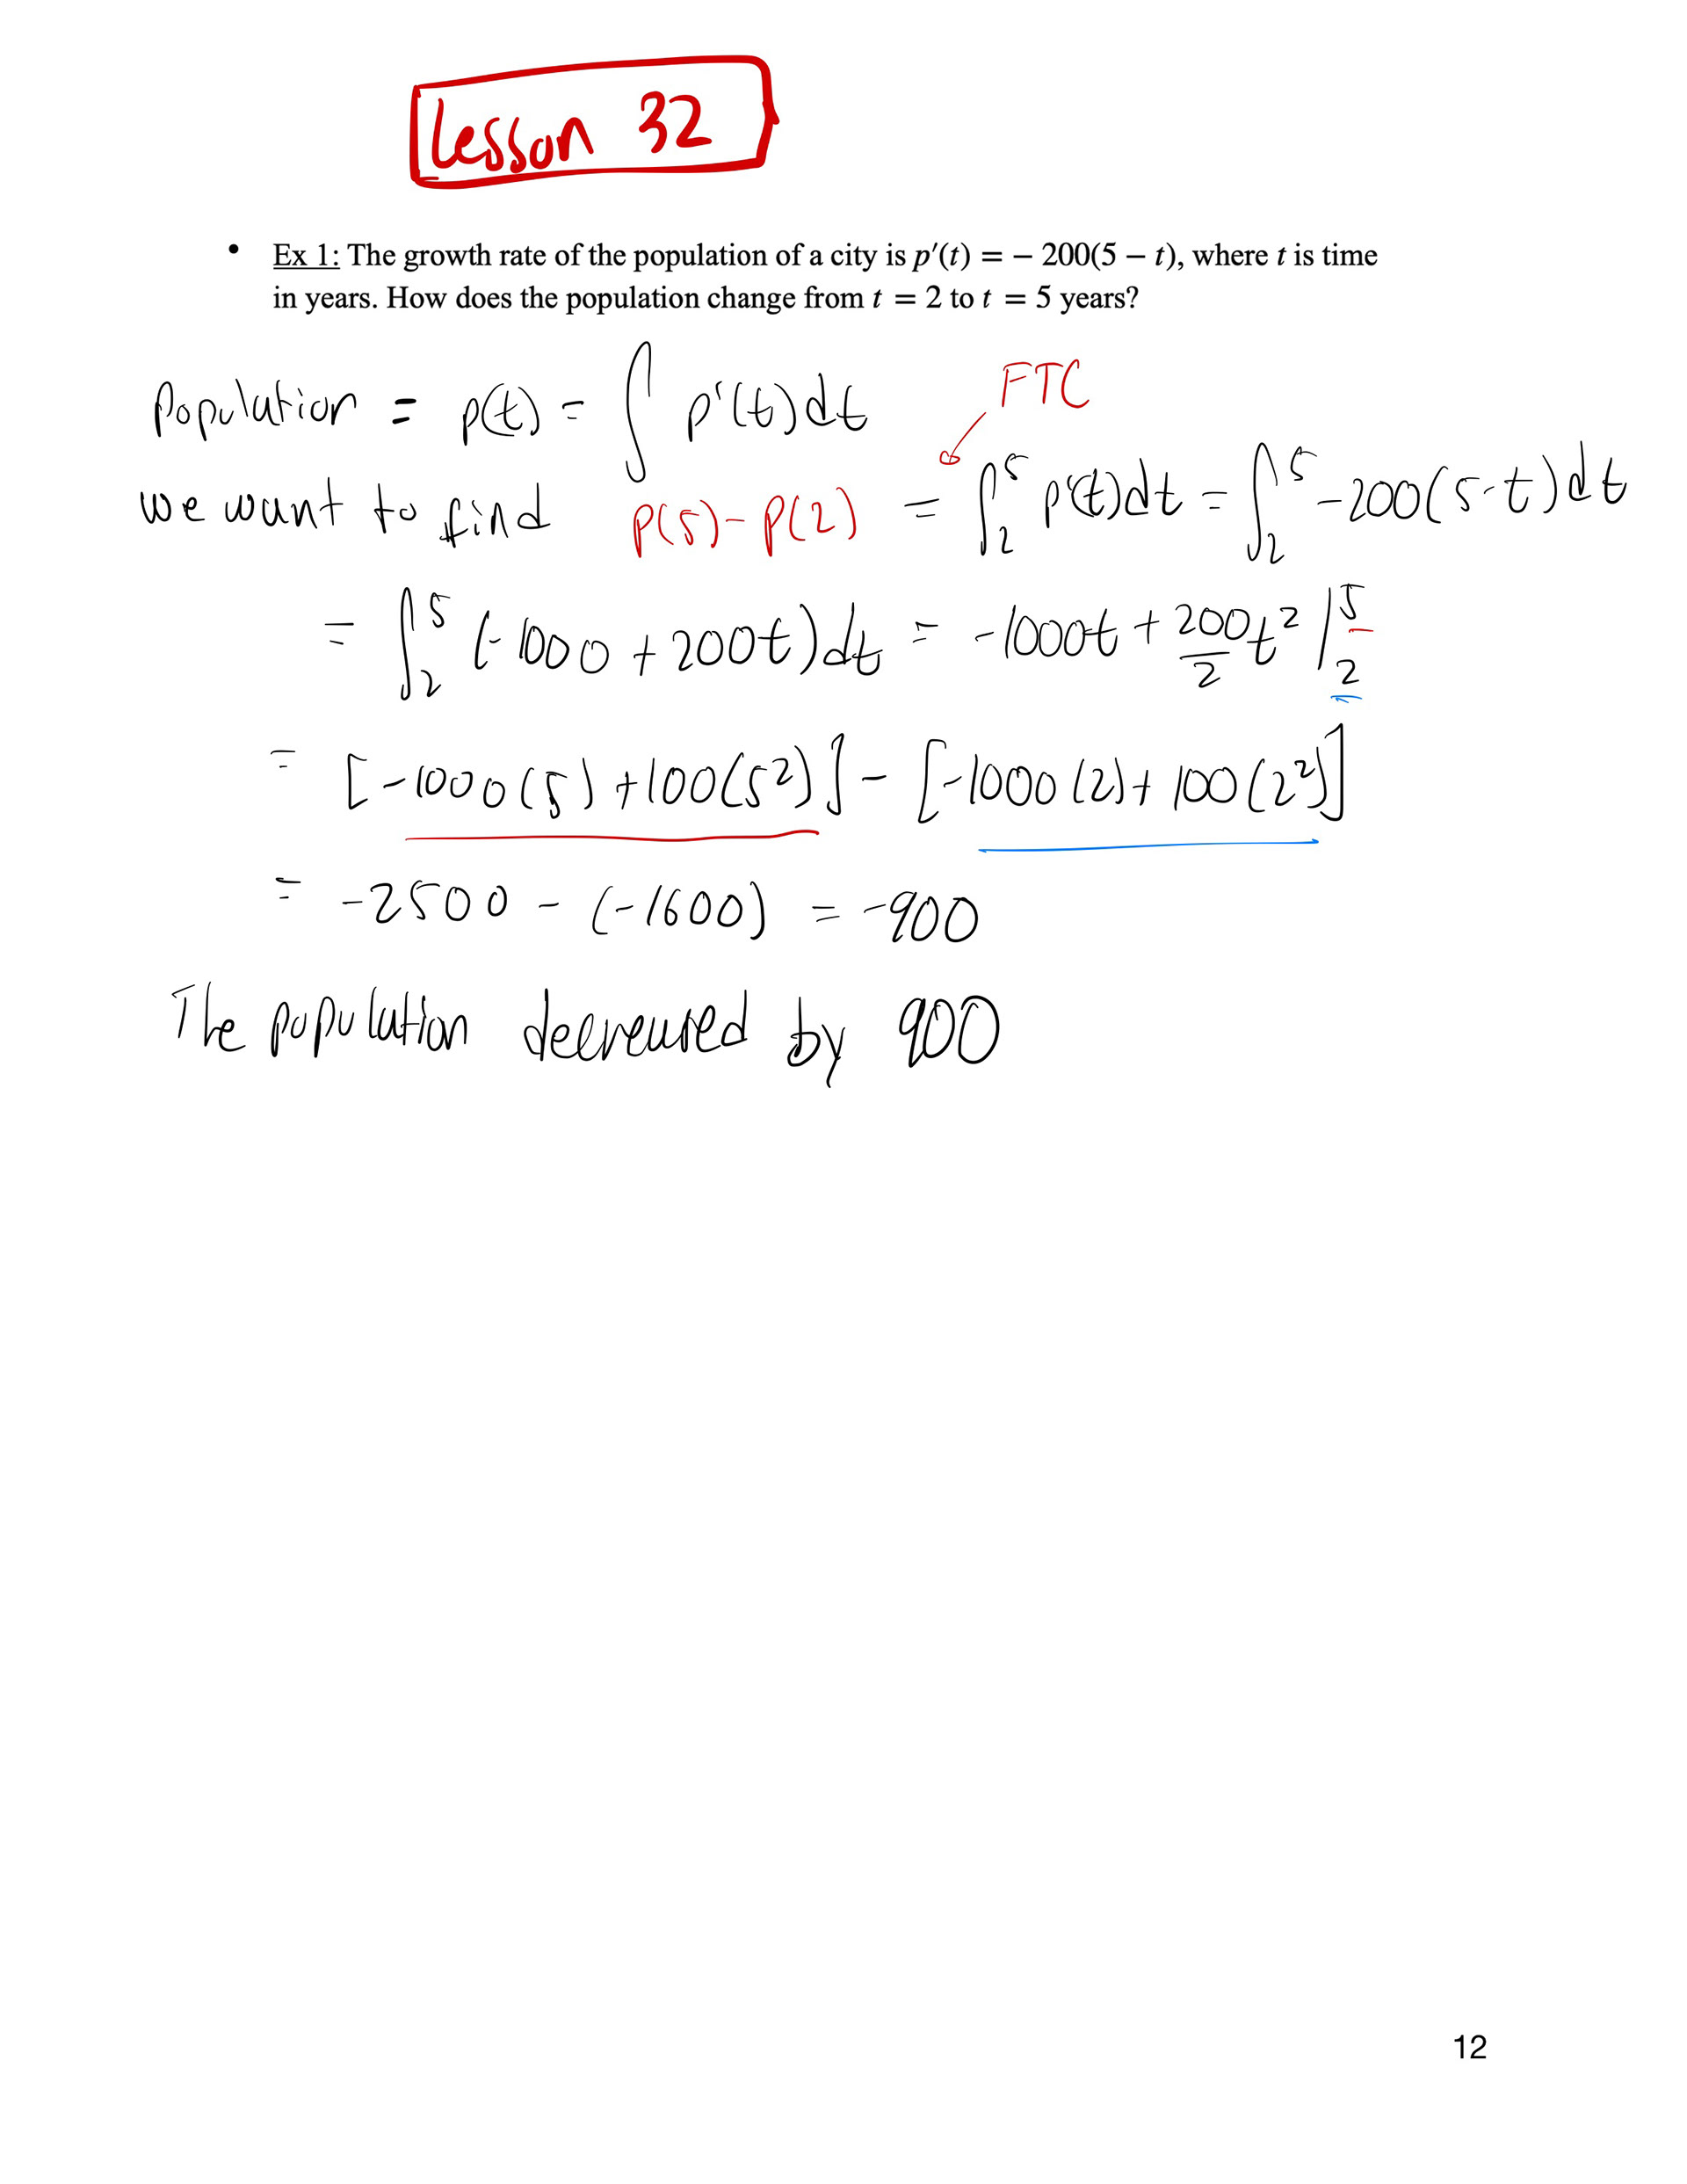 Lesson 32
• Ex 1: The growth rate of the population of a city is p′(t) = − 200(5 − t), where t is time
in years. How does the population change from t = 2 to t = 5 years?
FTC
Population = p(t) = ∫ p'(t)dt
we want to find p(5)-p(2) = ∫₂⁵ p'(t)dt = ∫₂⁵ -200(5-t)dt
= ∫₂⁵ (-1000 + 200t)dt = -1000t + 200/2 t² |₂⁵
= [-1000(5)+100(5²)] - [-1000(2)+100(2²)]
= -2500 - (-1600) = -900
The population decreased by 900
12